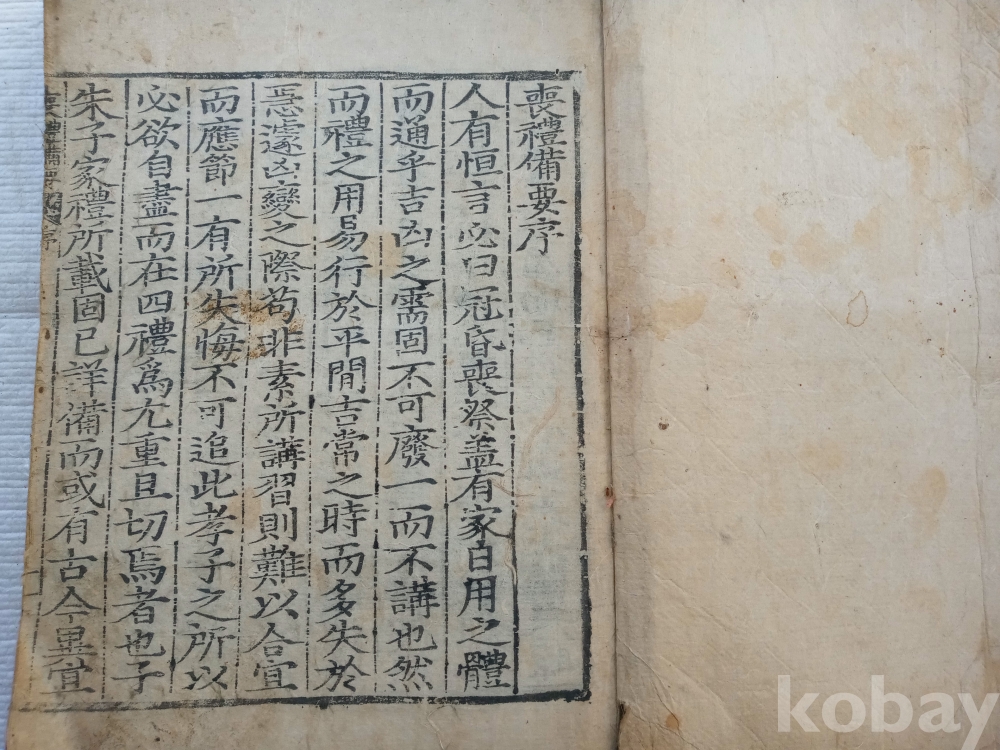 喪禮備要序
人有恒言必曰冠昏喪祭盖有家日用之體
而通乎吉凶之需固不可廢一而不講也然
而禮之用易行於平閒吉常之時而多失於
急遽凶變之際苟非素所講習則難以合宜
而應節一有所失悔不可追此孝子之所以
必欲自盡而在四禮爲尤重且切焉者也子
朱子家禮所載固已詳備而或有古今異宜
喪禮備要 序
kobay